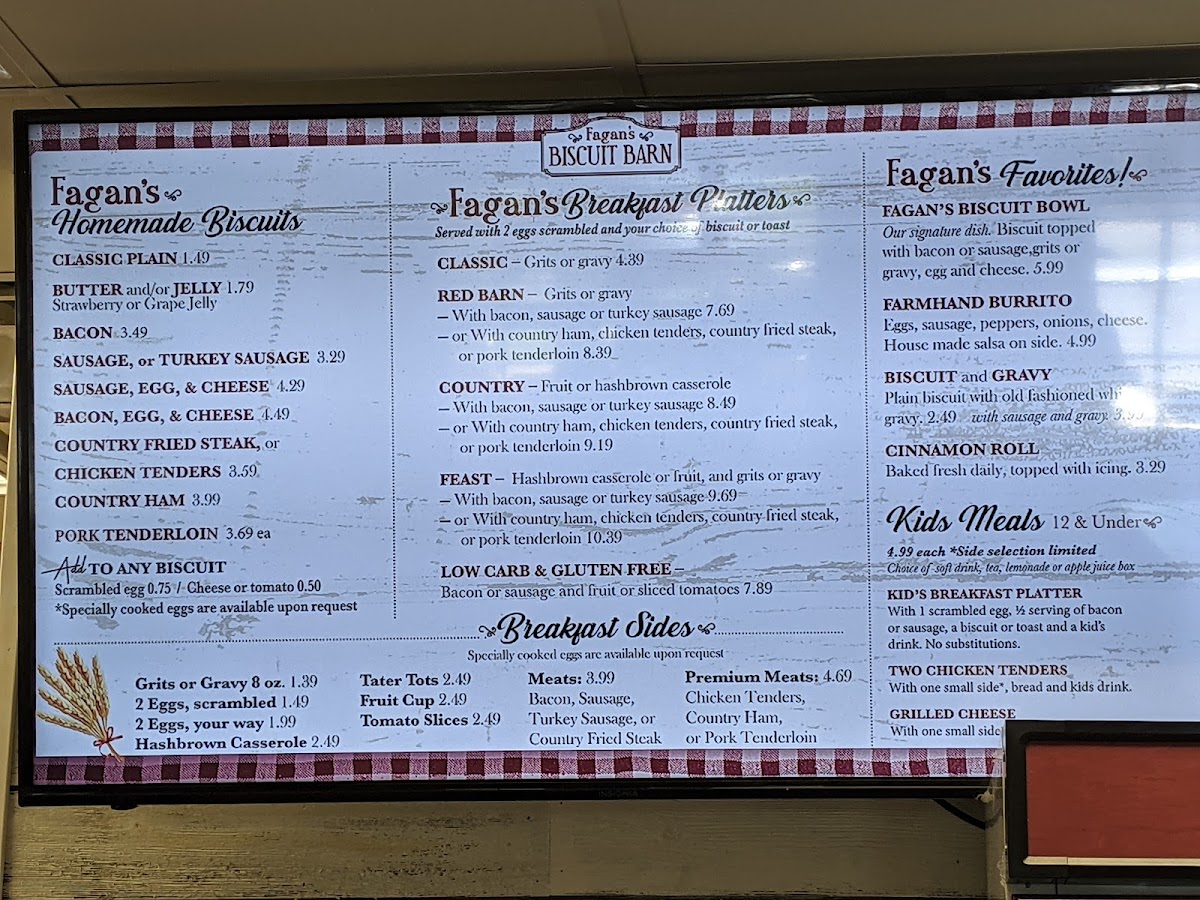 Fagan's
BISCUIT BARN
Fagan's
Homemade Biscuits
CLASSIC PLAIN 1.49
BUTTER and/or JELLY 1.79
Strawberry or Grape Jelly
BACON 3.49
SAUSAGE, or TURKEY SAUSAGE 3.29
SAUSAGE, EGG, & CHEESE 4.29
BACON, EGG, & CHEESE 4.49
COUNTRY FRIED STEAK, or
CHICKEN TENDERS 3.59
COUNTRY HAM 3.99
PORK TENDERLOIN 3.69 ea
Add TO ANY BISCUIT
Scrambled egg 0.75 / Cheese or tomato 0.50
*Specially cooked eggs are available upon request
Fagan's Breakfast Platters
Served with 2 eggs scrambled and your choice of biscuit or toast
CLASSIC – Grits or gravy 4.39
RED BARN – Grits or gravy
– With bacon, sausage or turkey sausage 7.69
– or With country ham, chicken tenders, country fried steak,
or pork tenderloin 8.39
COUNTRY – Fruit or hashbrown casserole
– With bacon, sausage or turkey sausage 8.49
– or With country ham, chicken tenders, country fried steak,
or pork tenderloin 9.19
FEAST – Hashbrown casserole or fruit, and grits or gravy
– With bacon, sausage or turkey sausage 9.69
– or With country ham, chicken tenders, country fried steak,
or pork tenderloin 10.39
LOW CARB & GLUTEN FREE –
Bacon or sausage and fruit or sliced tomatoes 7.89
Breakfast Sides
Specially cooked eggs are available upon request
Grits or Gravy 8 oz. 1.39
2 Eggs, scrambled 1.49
2 Eggs, your way 1.99
Hashbrown Casserole 2.49
Tater Tots 2.49
Fruit Cup 2.49
Tomato Slices 2.49
Meats: 3.99
Bacon, Sausage,
Turkey Sausage, or
Country Fried Steak
Premium Meats: 4.69
Chicken Tenders,
Country Ham,
or Pork Tenderloin
Fagan's Favorites!
FAGAN'S BISCUIT BOWL
Our signature dish. Biscuit topped
with bacon or sausage,grits or
gravy, egg and cheese. 5.99
FARMHAND BURRITO
Eggs, sausage, peppers, onions, cheese.
House made salsa on side. 4.99
BISCUIT and GRAVY
Plain biscuit with old fashioned
gravy. 2.49 with sausage and gravy.
CINNAMON ROLL
Baked fresh daily, topped with icing. 3.29
Kids Meals 12 & Under
4.99 each *Side selection limited
Choice of soft drink, tea, lemonade or apple juice box
KID'S BREAKFAST PLATTER
With 1 scrambled egg, ½ serving of bacon
or sausage, a biscuit or toast and a kid's
drink. No substitutions.
TWO CHICKEN TENDERS
With one small side*, bread and kids drink.
GRILLED CHEESE
With one small side
INSIGNIA